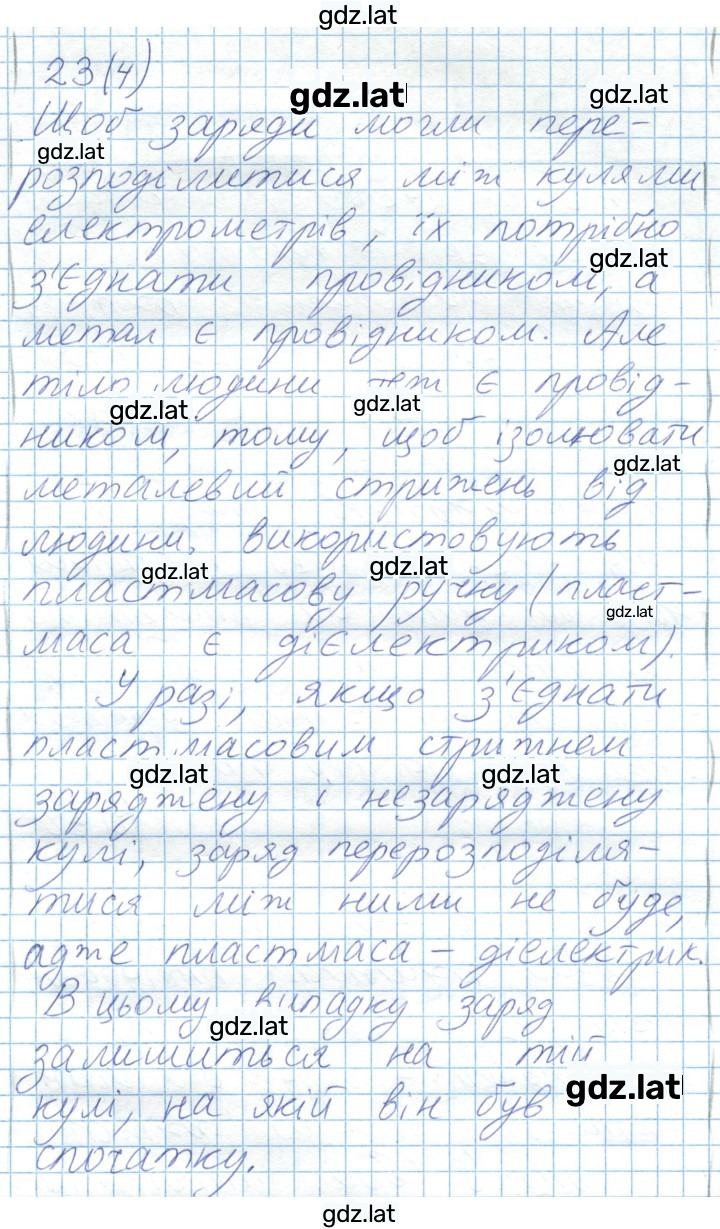 gdz.lat
23(4)
gdz.lat
gdz.lat
Щоб заряди могли пере-
gdz.lat
розподілитися між кулями
електрометрів, їх потрібно
gdz.lat
з'єднати провідником, а
метал є провідником. Але
тіло людини теж є провід-
gdz.lat
gdz.lat
ником, тому, щоб ізолювати
gdz.lat
металевий стрижень від
людини, використовують
gdz.lat
gdz.lat
пластмасову ручку (пласт-
gdz.lat
маса є діелектриком).
У разі, якщо з'єднати
пластмасовим стрижнем
gdz.lat
gdz.lat
заряджену і незаряджену
кулі, заряд перерозподіля-
тися між ними не буде,
адже пластмаса – діелектрик.
В цьому випадку заряд
gdz.lat
залишиться на тій
gdz.lat
кулі, на якій він був
спочатку.
gdz.lat